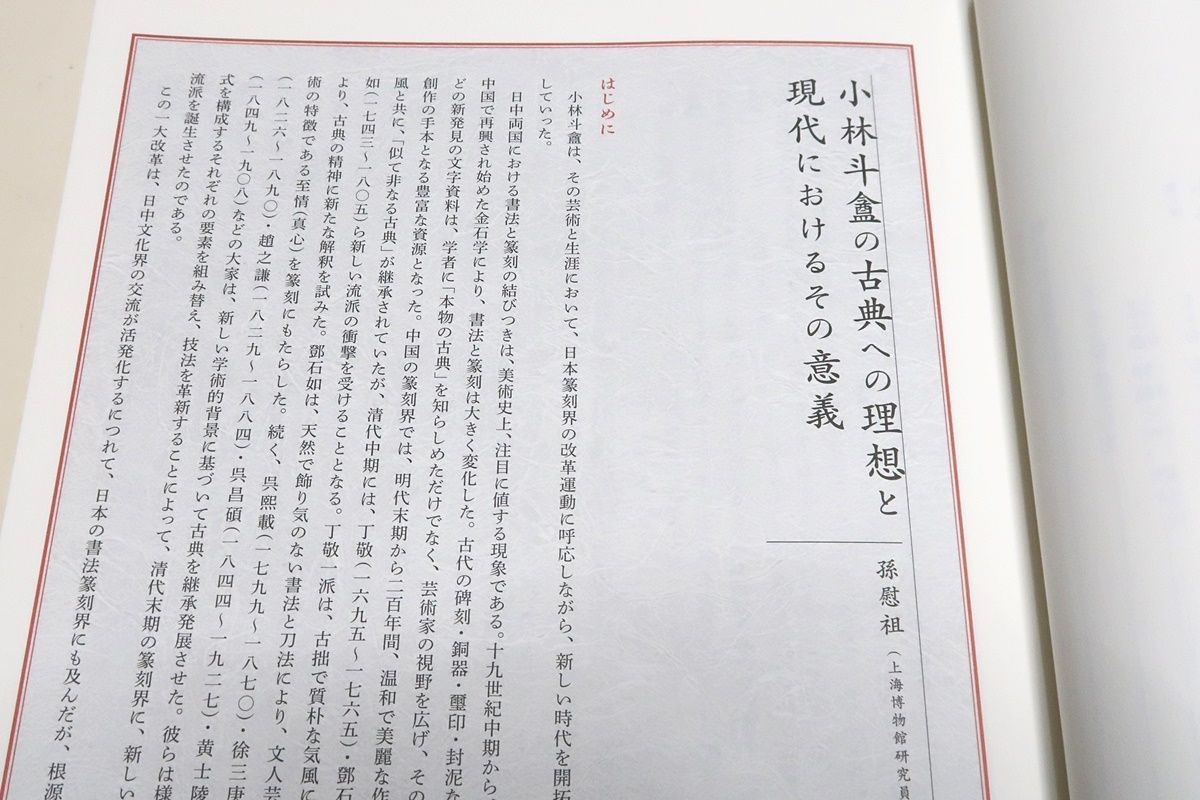 小林斗盦の古典への理想と
現代におけるその意義
孫慰祖（上海博物館研究員
はじめに
小林斗盦は、その芸術と生涯において、日本篆刻界の改革運動に呼応しながら、新しい時代を開拓
していった。
日中両国における書法と篆刻の結びつきは、美術史上、注目に値する現象である。十九世紀中期から
中国で再興され始めた金石学により、書法と篆刻は大きく変化した。古代の碑刻・銅器・璽印・封泥な
どの新発見の文字資料は、学者に「本物の古典」を知らしめただけでなく、芸術家の視野を広げ、その
創作の手本となる豊富な資源となった。中国の篆刻界では、明代末期から二百年間、温和で美麗な作
風と共に、「似て非なる古典」が継承されていたが、清代中期には、丁敬（一六九五〜一七六五）・鄧石
如（一七四三〜一八〇五）ら新しい流派の衝撃を受けることとなる。丁敬一派は、古拙で質朴な気風に
より、古典の精神に新たな解釈を試みた。鄧石如は、天然で飾り気のない書法と刀法により、文人芸
術の特徴である至情（真心）を篆刻にもたらした。続く、呉熙載（一七九九〜一八七〇）・徐三庚
（一八二六〜一八九〇）・趙之謙（一八二九〜一八八四）・呉昌碩（一八四四〜一九二七）・黄士陵
（一八四九〜一九〇八）などの大家は、新しい学術的背景に基づいて古典を継承発展させた。彼らは様
式を構成するそれぞれの要素を組み替え、技法を革新することによって、清代末期の篆刻界に、新しい
流派を誕生させたのである。
この一大改革は、日中文化界の交流が活発化するにつれて、日本の書法篆刻界にも及んだが、根源